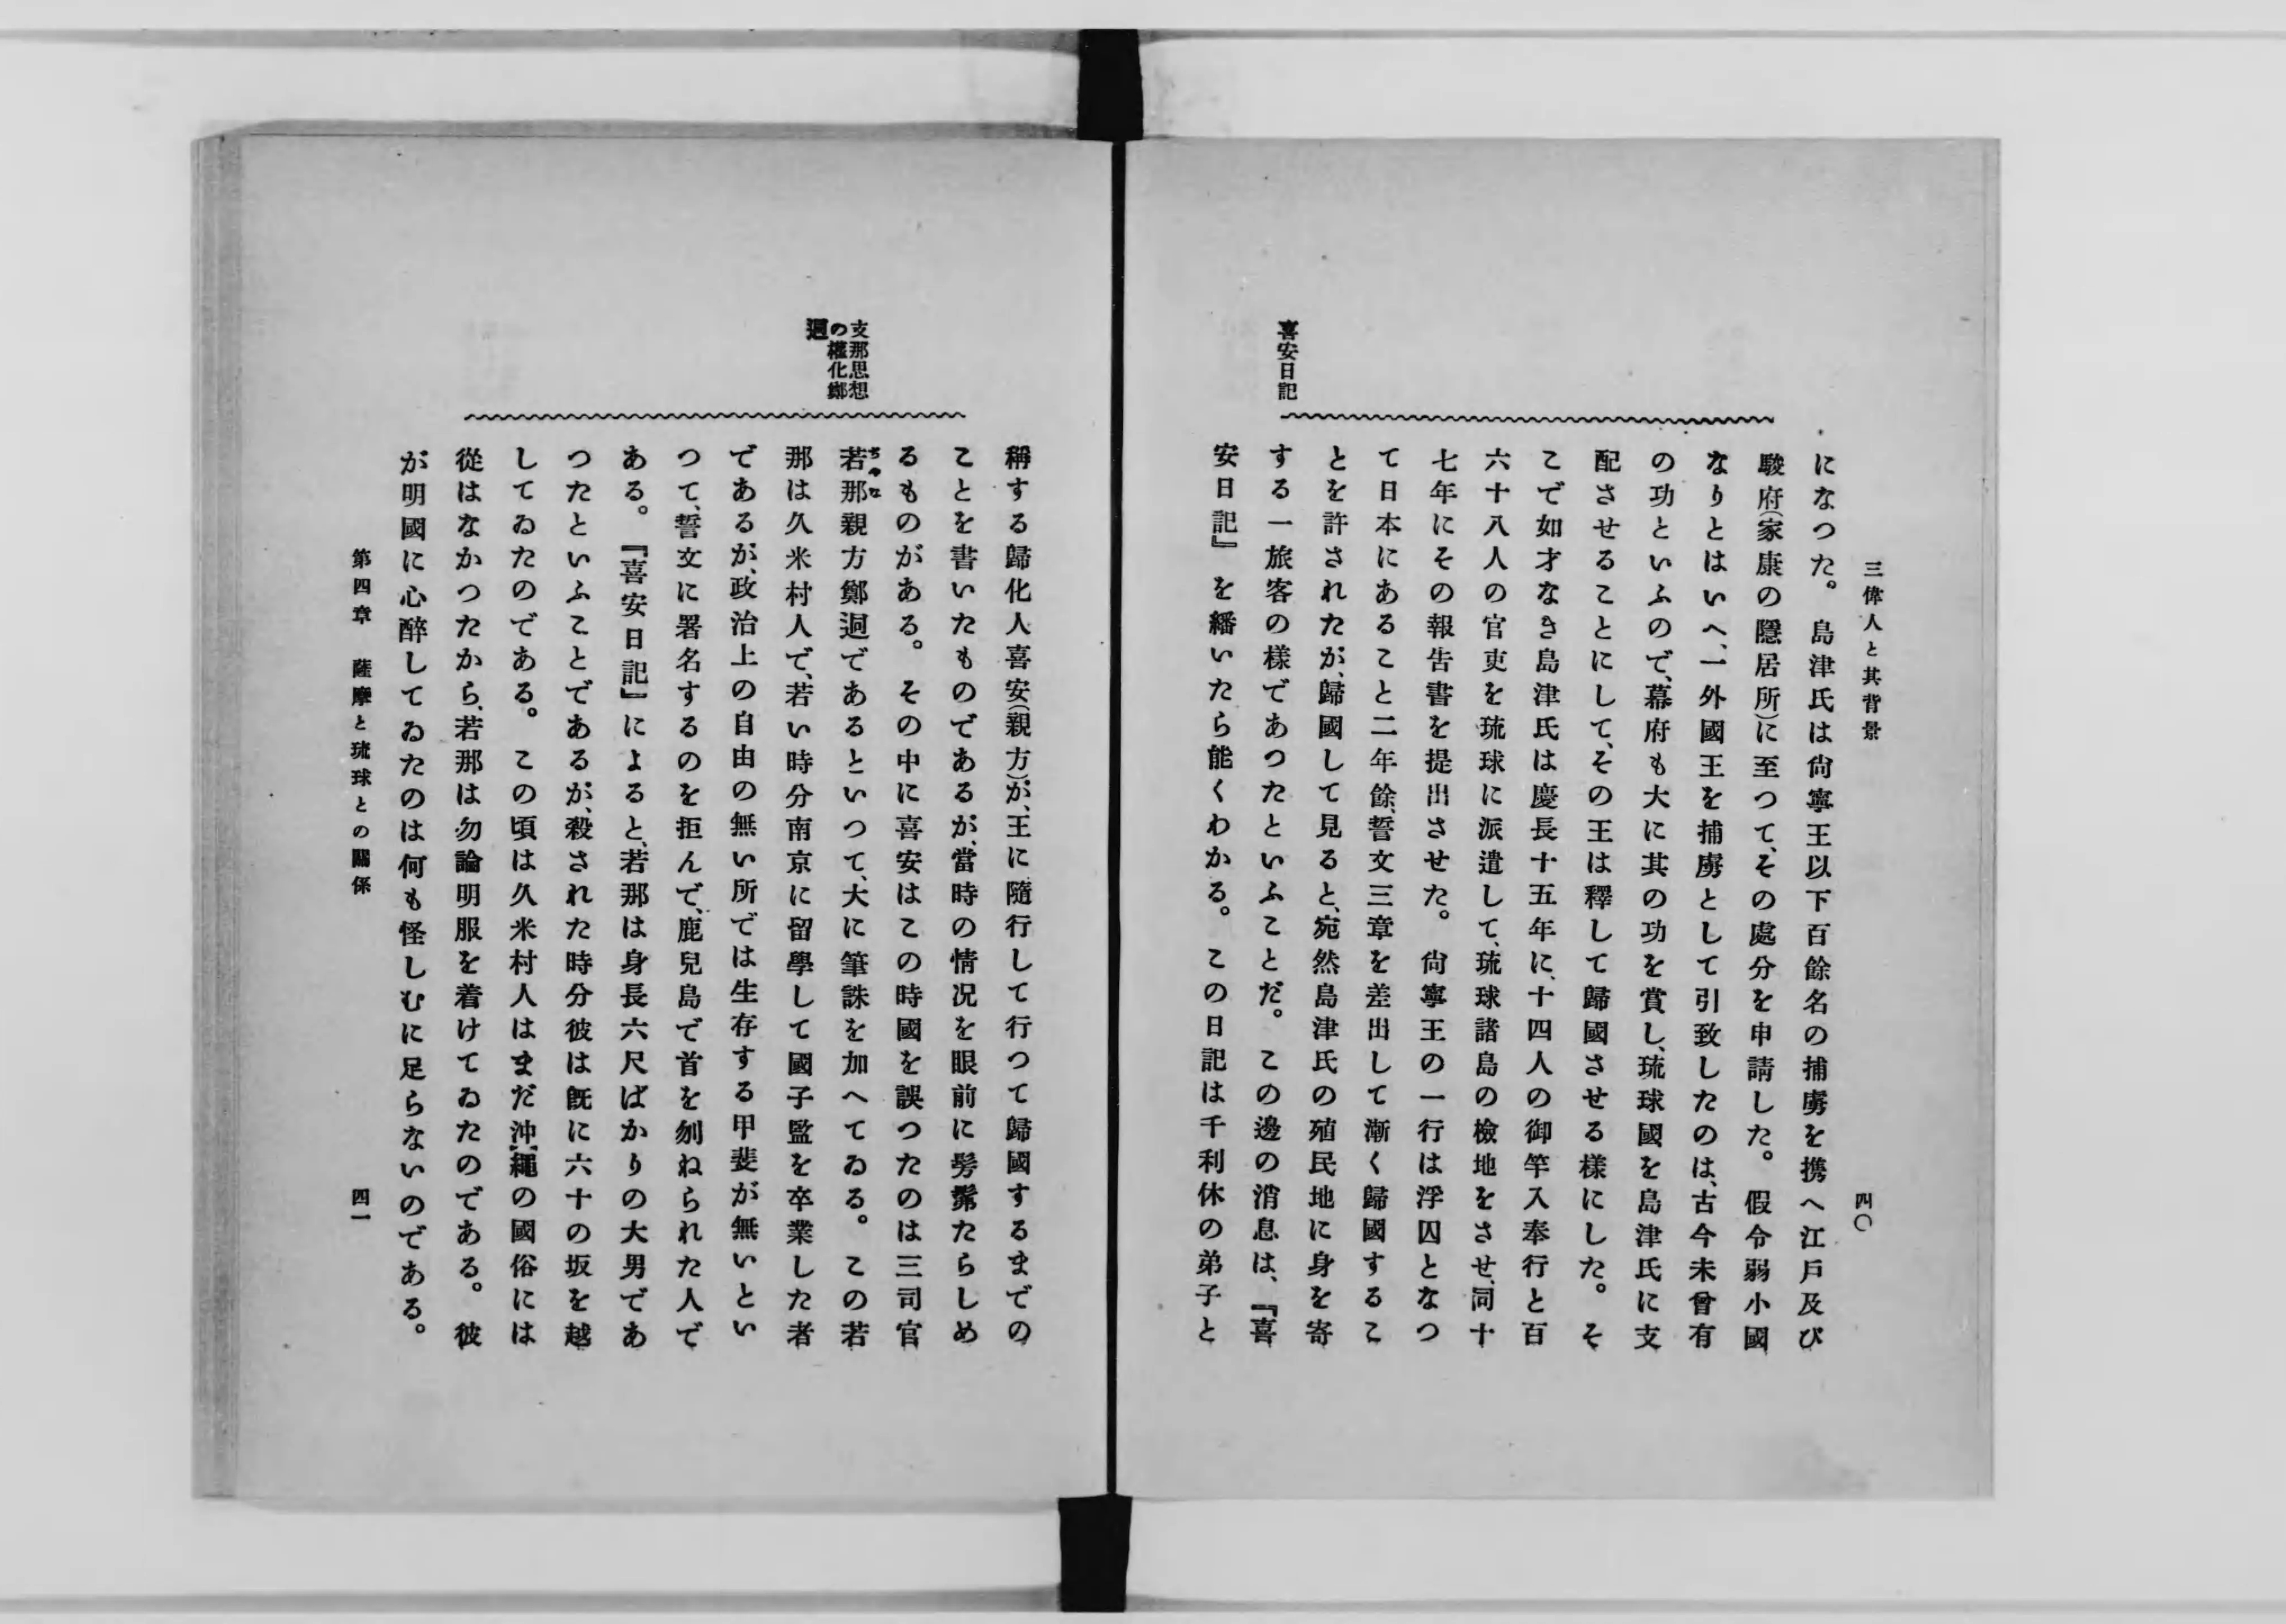 三偉人と其背景
四〇
喜安日記
になつた。島津氏は尙寧王以下百餘名の捕虜を携へ江戶及び
駿府(家康の隱居所)に至つて、その處分を申請した。假令弱小國
なりとはいへ、一外國王を捕虜として引致したのは、古今未曾有
の功といふので、幕府も大に其の功を賞し、琉球國を島津氏に支
配させることにして、その王は釋して歸國させる樣にした。そ
こで如才なき島津氏は慶長十五年に、十四人の御竿入奉行と百
六十八人の官吏を琉球に派遣して、琉球諸島の檢地をさせ、同十
七年にその報告書を提出させた。尙寧王の一行は浮囚となつ
て日本にあること二年餘、誓文三章を差出して漸く歸國するこ
とを許されたが、歸國して見ると、宛然島津氏の殖民地に身を寄
する一旅客の樣であつたといふことだ。この邊の消息は、『喜
安日記』を繙いたら能くわかる。この日記は千利休の弟子と
支那思想
の權化鄭
迵
稱する歸化人喜安(親方)が、王に隨行して行つて歸國するまでの
ことを書いたものであるが、當時の情況を眼前に髣髴たらしめ
るものがある。その中に喜安はこの時國を誤つたのは三司官
若那親方鄭迵であるといつて、大に筆誅を加へてゐる。この若
那は久米村人で、若い時分南京に留學して國子監を卒業した者
であるが、政治上の自由の無い所では生存する甲斐が無いとい
つて、誓文に署名するのを拒んで、鹿兒島で首を刎ねられた人で
ある。『喜安日記』によると、若那は身長六尺ばかりの大男であ
つたといふことであるが、殺された時分彼は旣に六十の坂を越
してゐたのである。この頃は久米村人はまだ沖繩の國俗には
從はなかつたから、若那は勿論明服を着けてゐたのである。彼
が明國に心醉してゐたのは何も怪しむに足らないのである。
第四章 薩摩と琉球との關係
四一